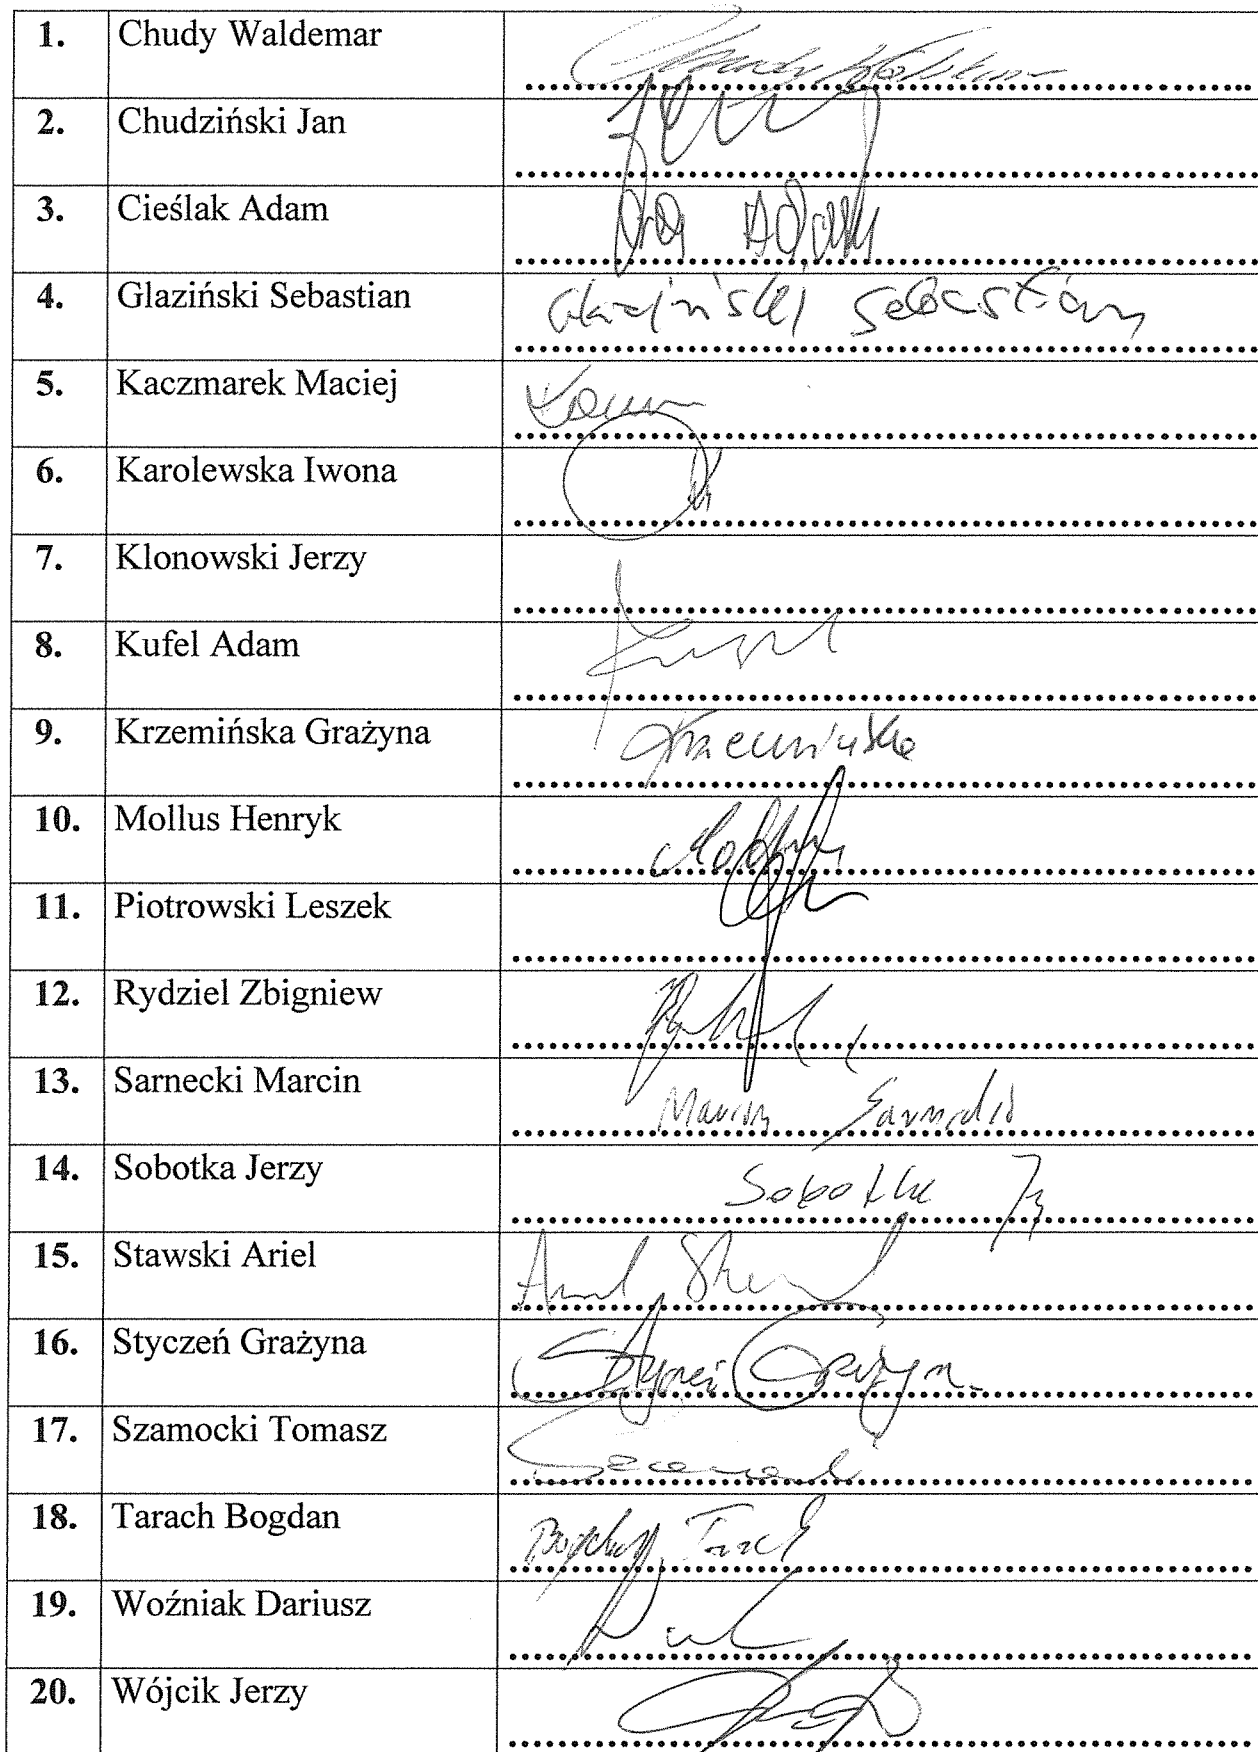 1. Chudy Waldemar Chudy Waldemar
2. Chudziński Jan
3. Cieślak Adam Adam
4. Glaziński Sebastian Glaziński Sebastian
5. Kaczmarek Maciej
6. Karolewska Iwona
7. Klonowski Jerzy
8. Kufel Adam Kufel
9. Krzemińska Grażyna Krzemińska
10. Mollus Henryk Mollus
11. Piotrowski Leszek
12. Rydziel Zbigniew
13. Sarnecki Marcin Marcin Sarnecki
14. Sobotka Jerzy Sobotka
15. Stawski Ariel Ariel
16. Styczeń Grażyna Styczeń Grażyna
17. Szamocki Tomasz
18. Tarach Bogdan Bogdan Tarach
19. Woźniak Dariusz
20. Wójcik Jerzy